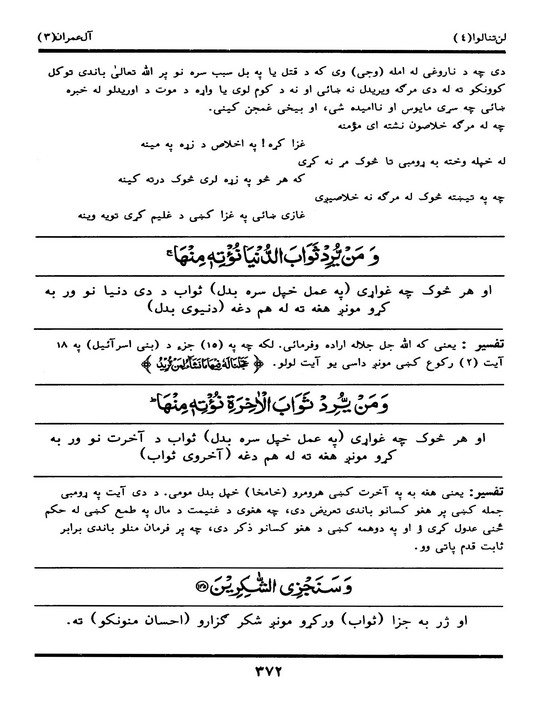 لن تنالوا(٤) آل عمران(٣)
دی چه د ناروغی له امله (وجی) وی که د قتل یا په بل سبب سره نو پر الله تعالیٰ باندی توکل
کوونکو ته له دی مرگه ویریدل نه ښائی او نه د کوم لوی یا واړه د موت د اوریدلو له خبره
ښائی چه سړی مایوس او ناامیده شی، او بیخی غمجن کینی.
چه له مرگه خلاصون نشته ای مؤمنه
غزا کړه! په اخلاص د زړه په مینه
له خپله وخته به ړومبی تا څوک مړ نه کړی
که هر څو په زړه لری څوک درته کینه
چه په تیښته څوک له مرگه نه خلاصیږی
غازی ښائی په غزا کښی د غلیم کړی تویه وینه
وَ مَنْ يُّرِدْ ثَوَابَ الدُّنْيَا نُؤْتِهٖ مِنْهَا ۚ
او هر څوک چه غواړی (په عمل خپل سره بدل) ثواب د دی دنیا نو ور به
کړو مونږ هغه ته له هم دغه (دنیوی بدل)
تفسیر : یعنی که الله جل جلاله اراده وفرمائی. لکه چه په (١٥) جزء د (بنی اسرآئیل) په ١٨
آیت (٢) رکوع کښی مونږ داسی یو آیت لولو. ﴿ عَجَّلْنَا لَهٗ فِيْهَا مَا نَشَآءُ لِمَنْ نُّرِيْدُ ﴾
وَ مَنْ يُّرِدْ ثَوَابَ الْاٰخِرَةِ نُؤْتِهٖ مِنْهَا ؕ
او هر څوک چه غواړی (په عمل خپل سره بدل) ثواب د آخرت نو ور به
کړو مونږ هغه ته له هم دغه (آخروی ثواب)
تفسیر: یعنی هغه به په آخرت کښی هرومرو (خامخا) خپل بدل مومی. د دی آیت په ړومبی
جمله کښی پر هغو کسانو باندی تعریض دی، چه هغوی د غنیمت د مال په طمع کښی له حکم
څنی عدول کړی ؤ او په دوهمه کښی د هغو کسانو ذکر دی، چه پر فرمان منلو باندی برابر
ثابت قدم پاتی وو.
وَ سَنَجْزِى الشّٰكِرِيْنَ ﴿١٤٥﴾
او ژر به جزا (ثواب) ورکړو مونږ شکر گزارو (احسان منونکو) ته.
٣٧٢